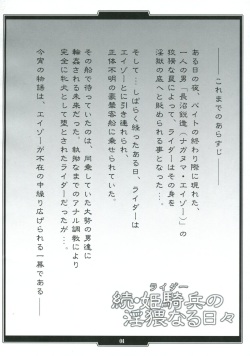 これまでのあらすじ
ある日の夜、バイトの終わり際に現れた、
一人の男「長沼鋭造（ナガヌマ・エイゾー）」の
狡猾な罠によって、ライダーはその身を
淫獄の底へと貶められる事となった…。
そして…しばらく経ったある日、ライダーは
エイゾーとに引き連れられ、
正体不明の豪華客船に乗せられていた。
その船で待っていたのは、同乗していた大勢の男達に
輪姦される未来だった。執拗なまでのアナル調教により
完全に牝犬として堕とされたライダーだったが…。
今宵の物語は、エイゾーが不在の中繰り広げられる一幕である
ライダー
続・姫騎兵の
淫猥なる日々
04